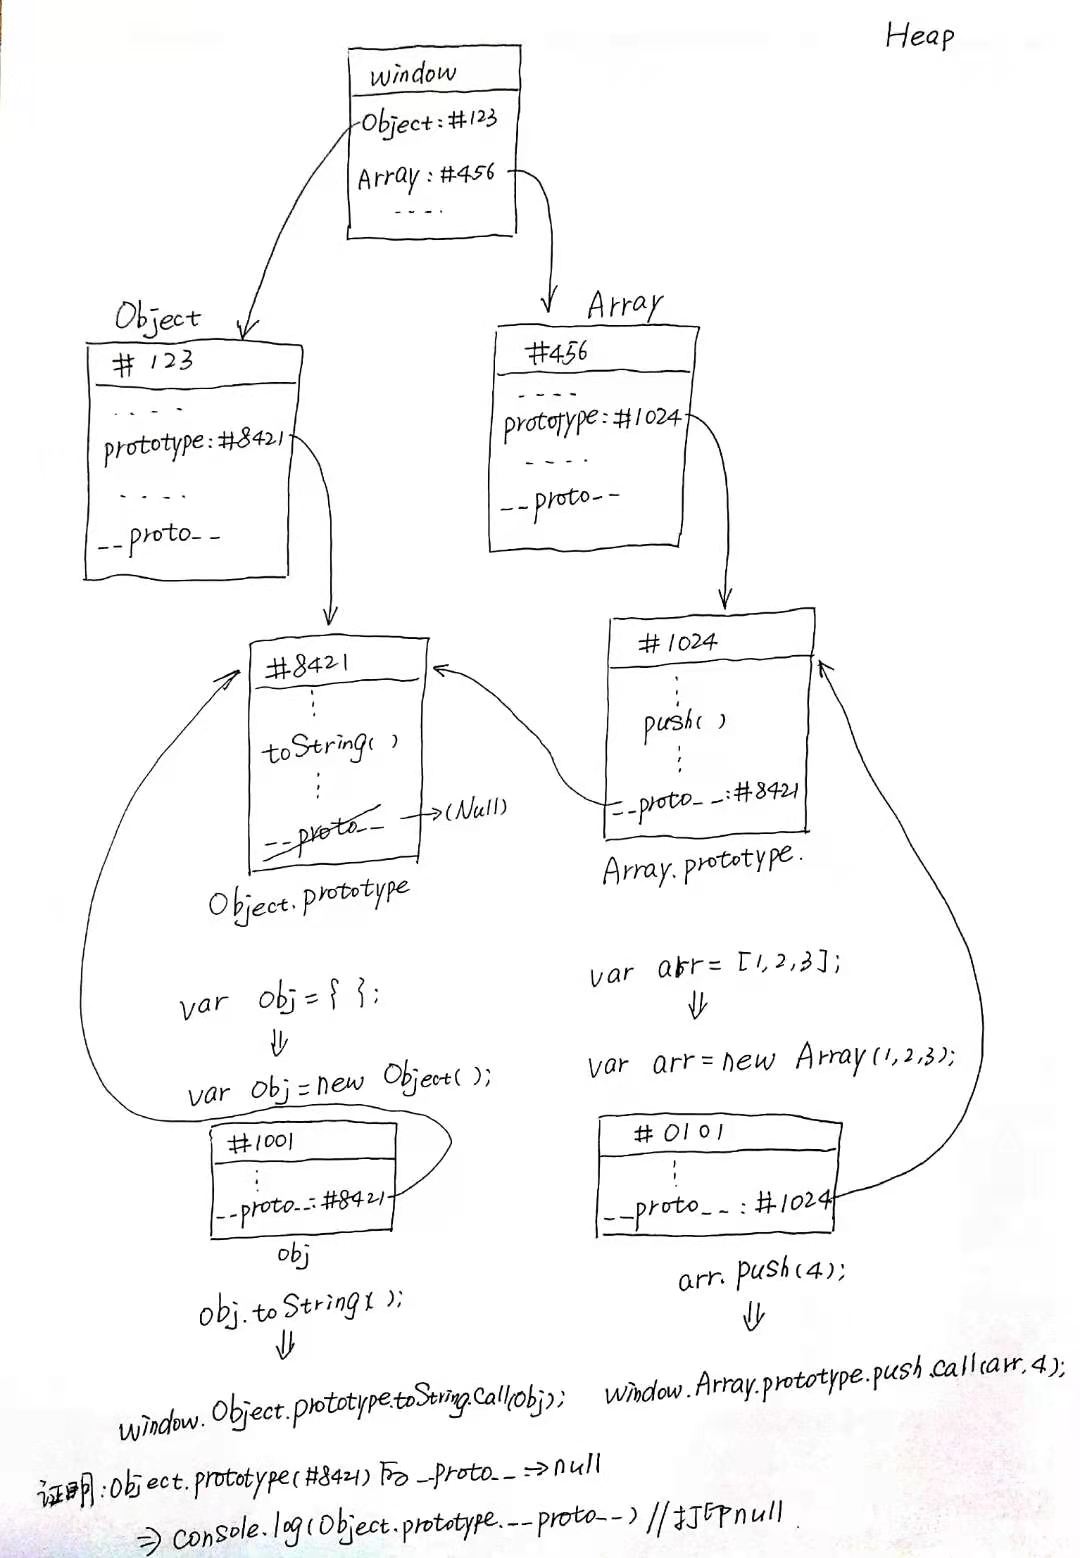 Heap
window
Object:#123
Array:#456
----
Object
#123
----
prototype:#8421
----
__proto__
Array
#456
----
prototype:#1024
----
__proto__
#8421
toString()
__proto__
→(Null)
Object.prototype
#1024
push()
__proto__:#8421
Array.prototype.
var obj={ };
⇓
var obj=new Object();
#1001
__proto__:#8421
obj
obj.toString();
⇓
window.Object.prototype.toString.call(obj);
var arr=[1,2,3];
⇓
var arr=new Array(1,2,3);
#0101
__proto__:#1024
arr.push(4);
⇓
window.Array.prototype.push.call(arr,4);
证明:Object.prototype(#8421)的__proto__⇒null
⇒console.log(Object.prototype.__proto__)//打印null